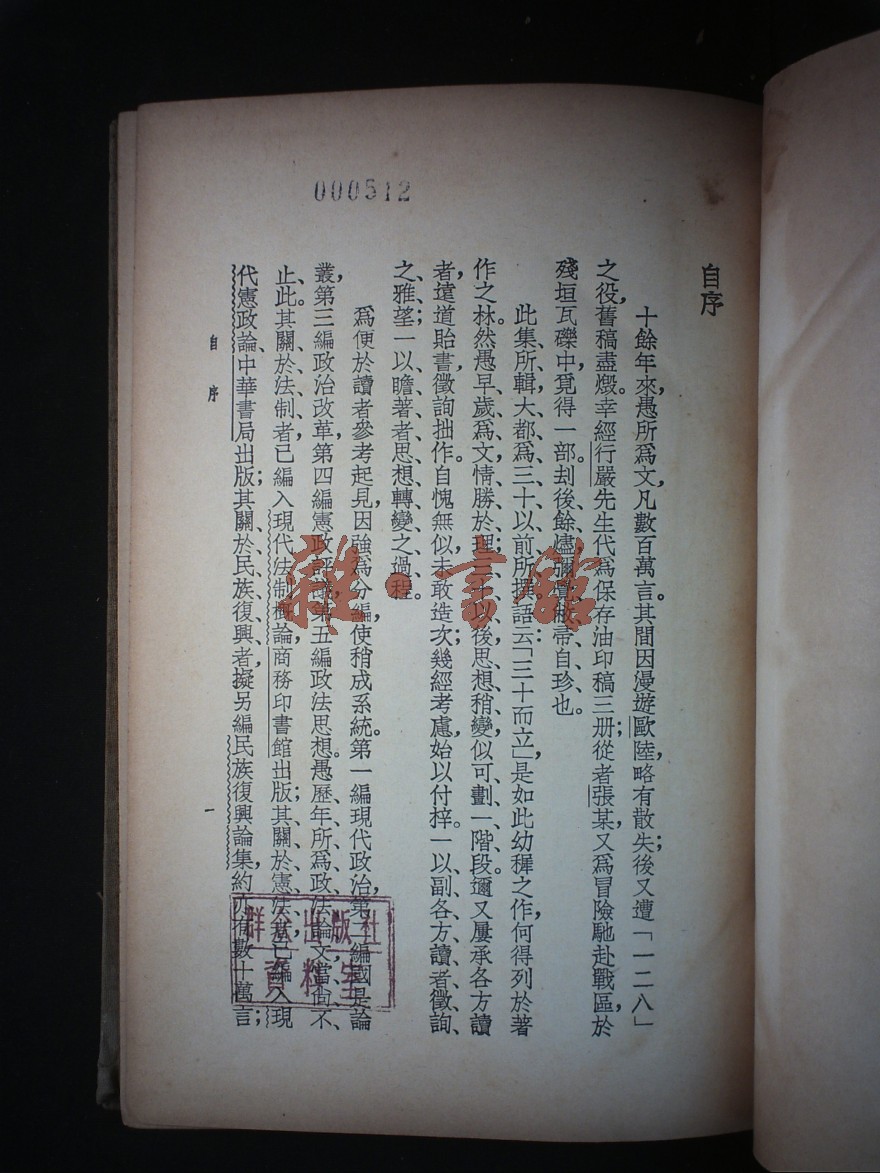 000512
自序
十餘年來，愚所爲文，凡數百萬言。其間因漫遊歐陸，略有散失；後又遭「一二八」
之役，舊稿盡燬。幸經行嚴先生代爲保存油印稿三册；從者張某，又爲冒險馳赴戰區，於
殘垣瓦礫中，覓得一部。刦後餘燼，彌覺敝帚自珍也。
此集所輯，大都爲三十以前所撰。語云：「三十而立」，是如此幼穉之作，何得列於著
作之林。然愚早歲爲文，情勝於理，三十以後，思想稍變，似可劃一階段。邇又屢承各方讀
者，遠道貽書，徵詢拙作。自愧無似，未敢造次；幾經考慮，始以付梓。一以副各方讀者徵詢
之雅望，一以瞻著者思想轉變之過程。
爲便於讀者參考起見，因強爲分編，使稍成系統。第一編現代政治，第二編國是論
叢，第三編政治改革，第四編憲政評議，第五編政法思想。愚歷年所爲政法論文，當尙不
止此。其關於法制者，已編入現代法制概論，商務印書館出版；其關於憲法者，已編入現
代憲政論，中華書局出版；其關於民族復興者，擬另編民族復興論集，約亦有數十萬言；
自序
一
雜·書館
群众出版社
資料室